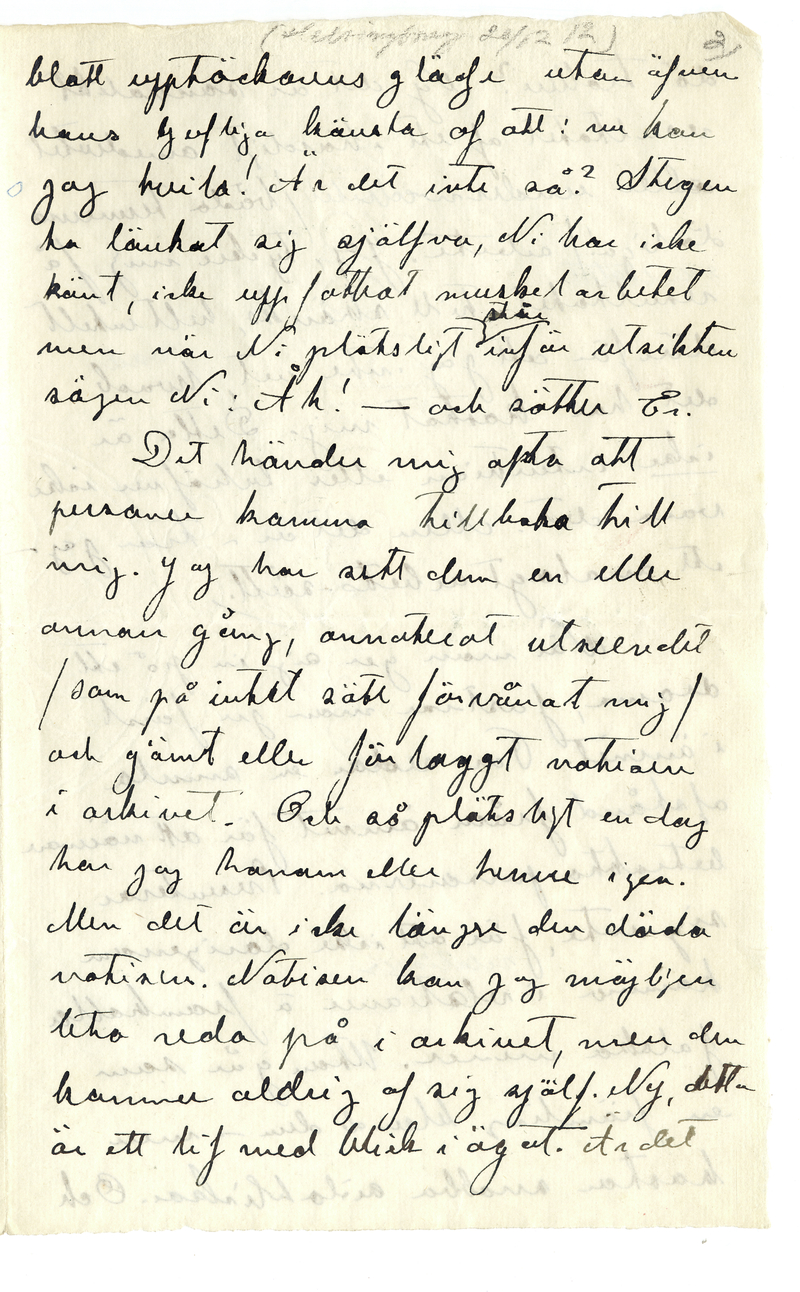 (Helsingborg 20/12 12) 2)
blott upptäckarens glädje utan äfven
hans ljufliga känsla af att: nu kan
jag hvila! Är det inte så? Stegen
ha länkat sig själfva, Ni har icke
känt, icke uppfattat muskelarbetet
men när Ni plötsligt står inför utsikten
säger Ni: Åh! — och sätter Er.
Det händer mig ofta att
personer komma tillbaka till
mig. Jag har sett dem en eller
annan gång, annoterat utseendet
/som på intet sätt förvånat mig/
och gömt eller förlaggt notisen
i arkivet. Och så plötsligt en dag
har jag honom eller henne igen.
Men det är icke längre den döda
notisen. Notisen kan jag möjligen
leta reda på i arkivet, men den
kommer aldrig af sig själf. Nej, detta
är ett lif med blick i ögat. Är det